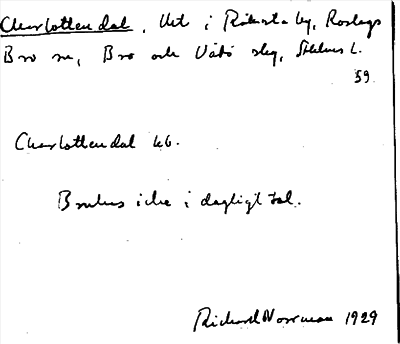 Charlottendal, Uht i Råkersta by, Roslags
Bro sn, Bro och Vätö skg, Sthlms l.
59
Charlottendal lb.
Brukas icke i dagligt tal.
Richard Norrman 1929